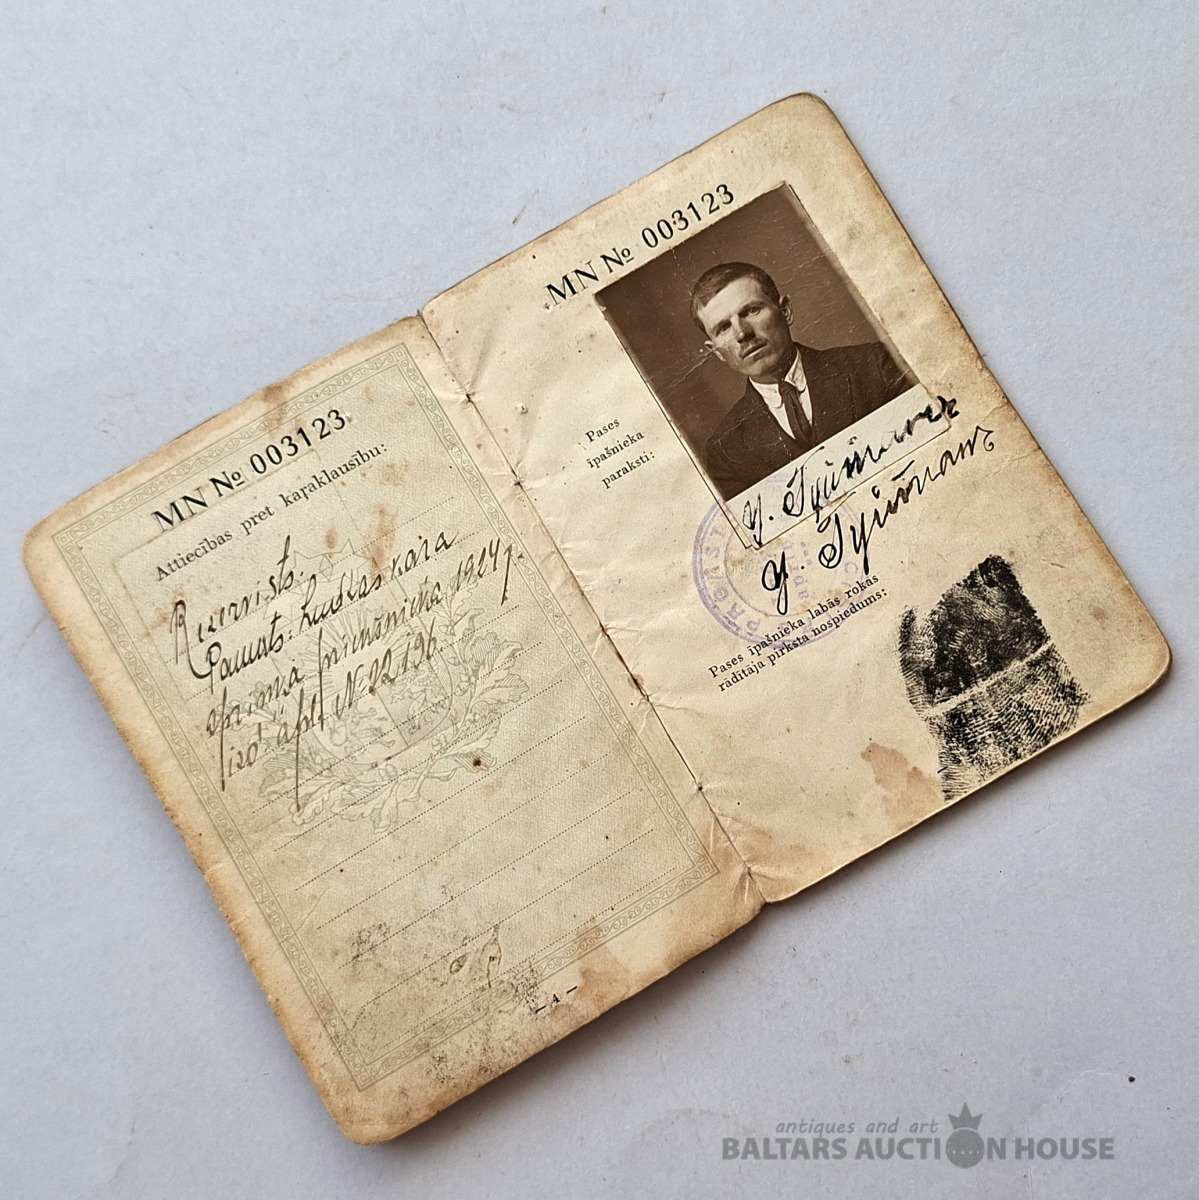 MN № 003123
Attiecības pret kaŗaklausību:
Rezervists.
Pamats: Ludzas kara
apriņķa priekšnieka 1924 g.
izd. apl. № 22196
- 4 -
MN № 003123
Pases
īpašnieka
paraksti:
PAGASTA
Pases īpašnieka labās rokas
rādītāja pirksta nospiedums:
antiques and art
BALTARS AUCTION HOUSE